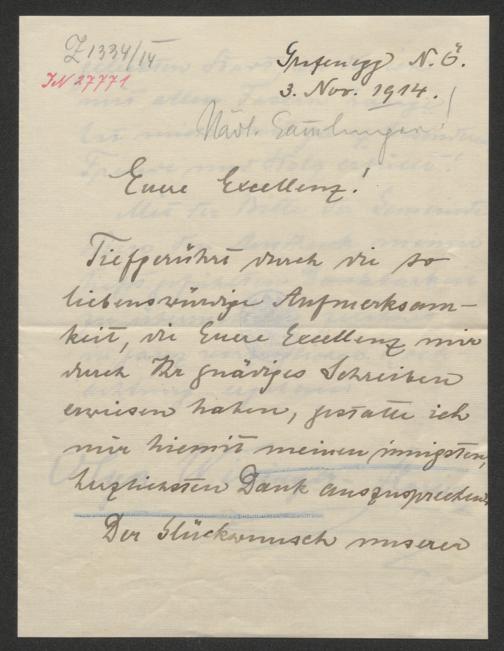 Z 1334/14
IN 27771
Grafenegg N.Ö.
3. Nov. 1914.
Städt. Sammlungen!
Euere Excellenz!
Tiefgerührt durch die so
liebenswürdige Aufmerksam-
keit, die Euere Excellenz mir
durch Ihr gnädiges Schreiben
erwiesen haben, gestatte ich
mir hiemit meinen innigsten,
herzlichsten Dank auszusprechen.
Der Glückwunsch unserer